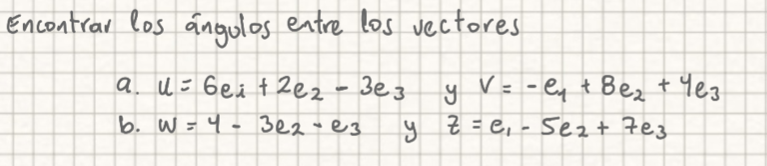 Encontrar los ángulos entre los vectores
a. u = 6ei + 2e2 - 3e3 y V = -e1 + 8e2 + 4e3
b. w = 4 - 3e2 - e3 y z = e1 - 5e2 + 7e3